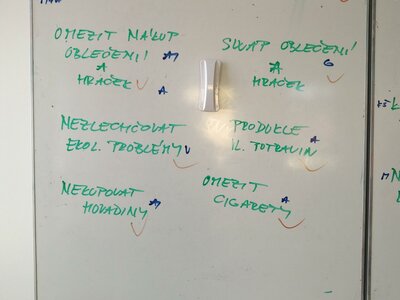 OMEZIT NÁKUP
OBLEČENÍ
A
HRAČEK
A
SWAP OBLEČENÍ
A G
HRAČEK
NEZLEHČOVAT
EKOL. PROBLÉMY
PRODUKLE
VL. POTRAVIN
NEKUPOVAT
HOVADINY
OMEZIT
CIGARETY